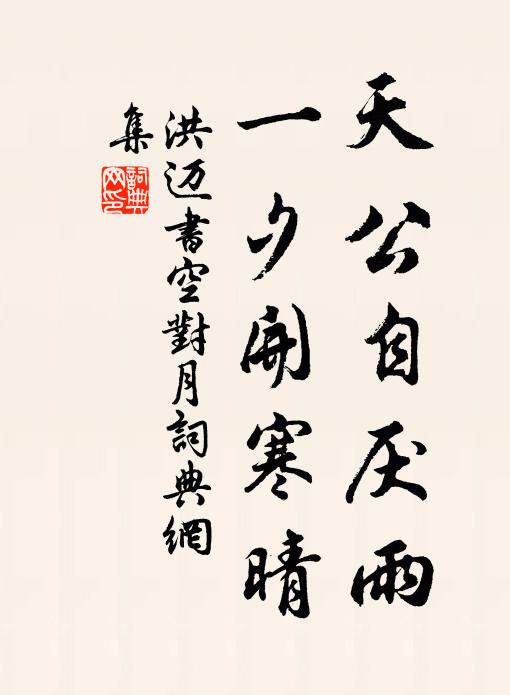 天公自厌雨
一夕開寒晴
洪迈書空對月詞典網
集
詞典
网印